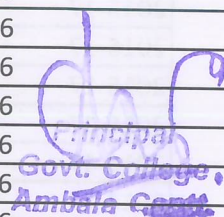 6
6
6
6
Principal
6
Govt. College,
6
Ambala Cantt.
6